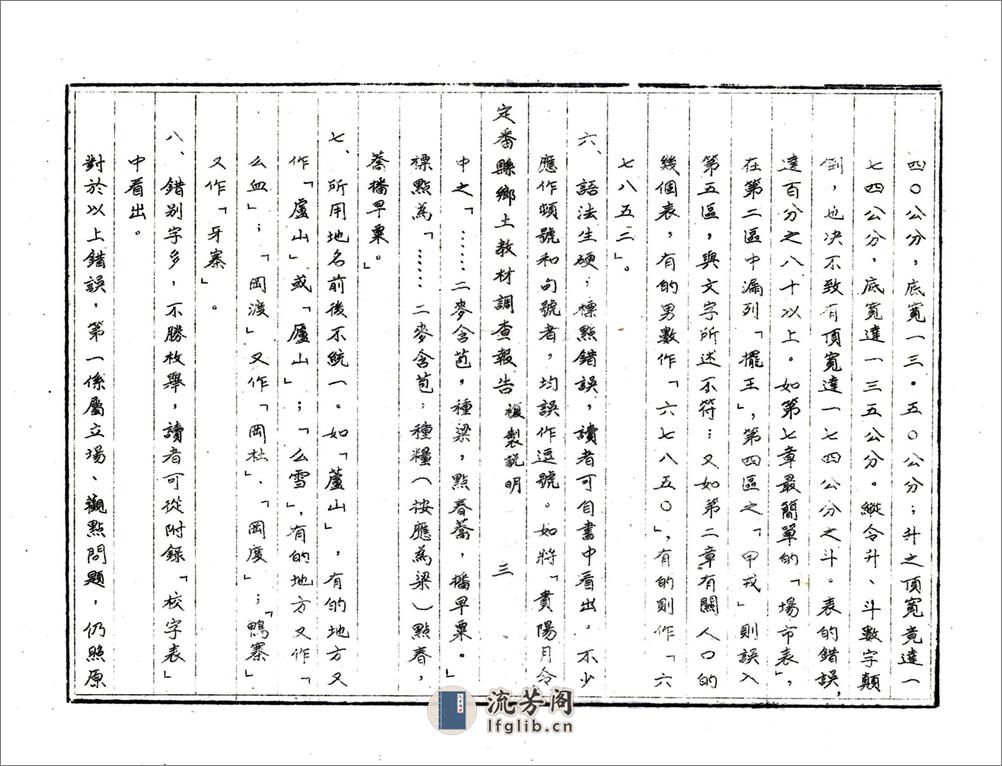 四〇公分，底寬一三·五〇公分；升之頂寬竟達一
七四公分，底寬達一三五公分。縱令升、斗數字顛
倒，也決不致有頂寬達一七四公分之斗。表的錯誤，
達百分之八十以上。如第七章最簡單的「場市表」，
在第二區中漏列「擺王」，第四區之「甲戎」則誤入
第五區，與文字所述不符；又如第二章有關人口的
幾個表，有的男數作「六七八五〇」，有的則作「六
七八五二」。
六、語法生硬；標點錯誤，讀者可自書中看出。不少
應作頓號和句號者，均誤作逗號。如將「貴陽月令
定番縣鄉土教材調查報告 複製說明 三
中之「……二麥含苞，種梁，點春蕎，播早粟。」
標點為「……二麥含苞；種糧（按應為梁）點春，
蕎播早粟。」
七、所用地名前後不統一。如「蘆山」，有的地方又
作「盧山」或「廬山」；「么雪」，有的地方又作「
么血」；「岡渡」又作「岡杜」、「岡度」；「鴨寨」
又作「牙寨」。
八、錯別字多，不勝枚舉，讀者可從附錄「校字表」
中看出。
對於以上錯誤，第一係屬立場、觀點問題，仍照原
流芳阁
lfglib.cn